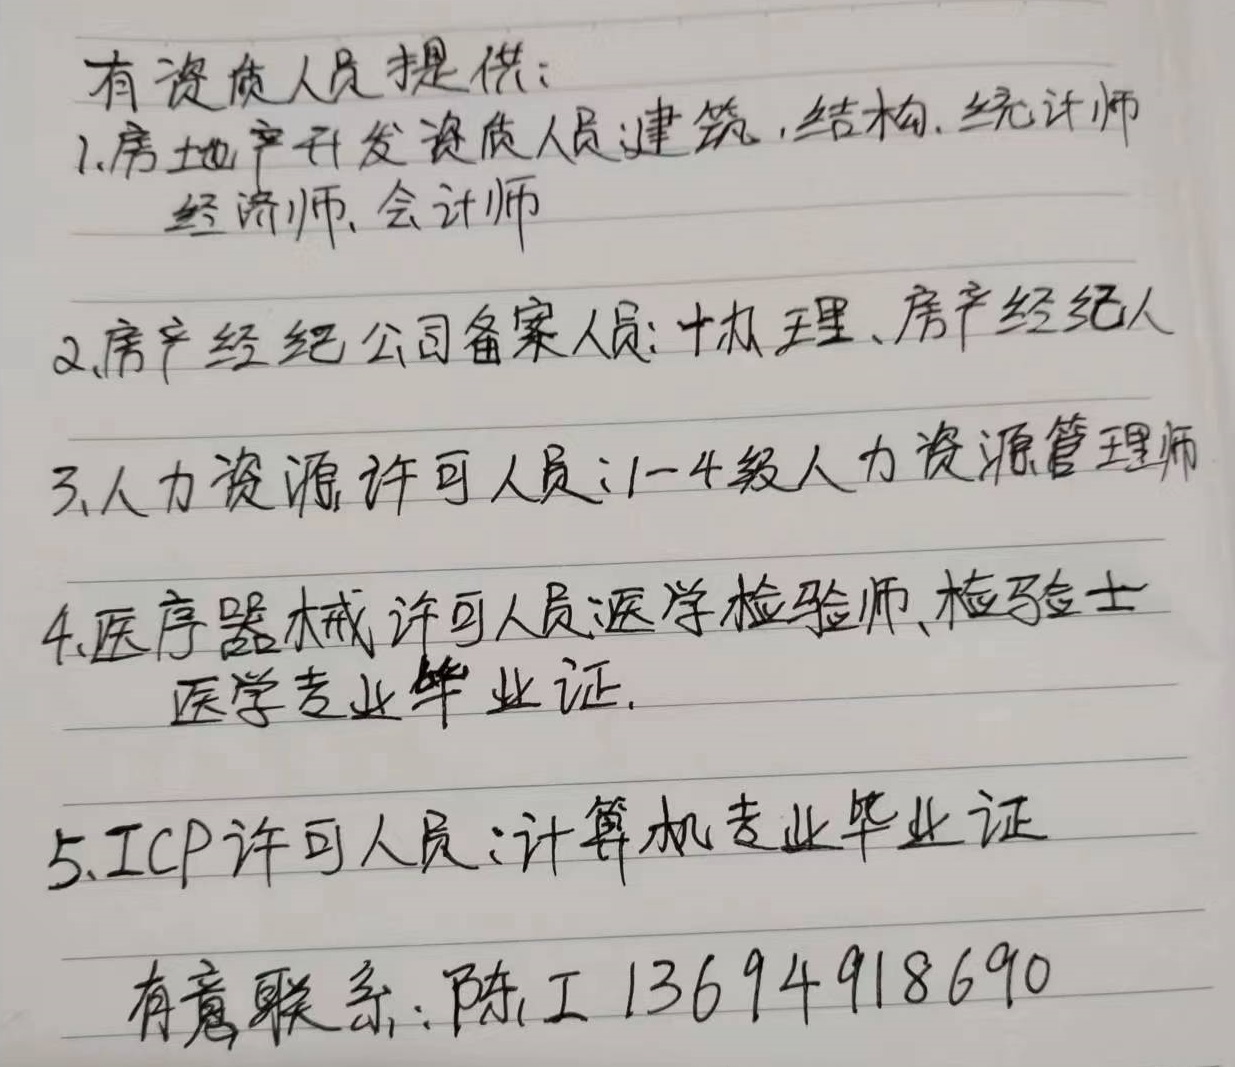 有资质人员提供:
1.房地产开发资质人员:建筑.结构.统计师
经济师、会计师
2、房产经纪公司备案人员:协理、房产经纪人
3、人力资源许可人员:1-4级人力资源管理师
4、医疗器械许可人员:医学检验师、检验士
医学专业毕业证.
5、ICP许可人员:计算机专业毕业证
有意联系:陈工 13694918690